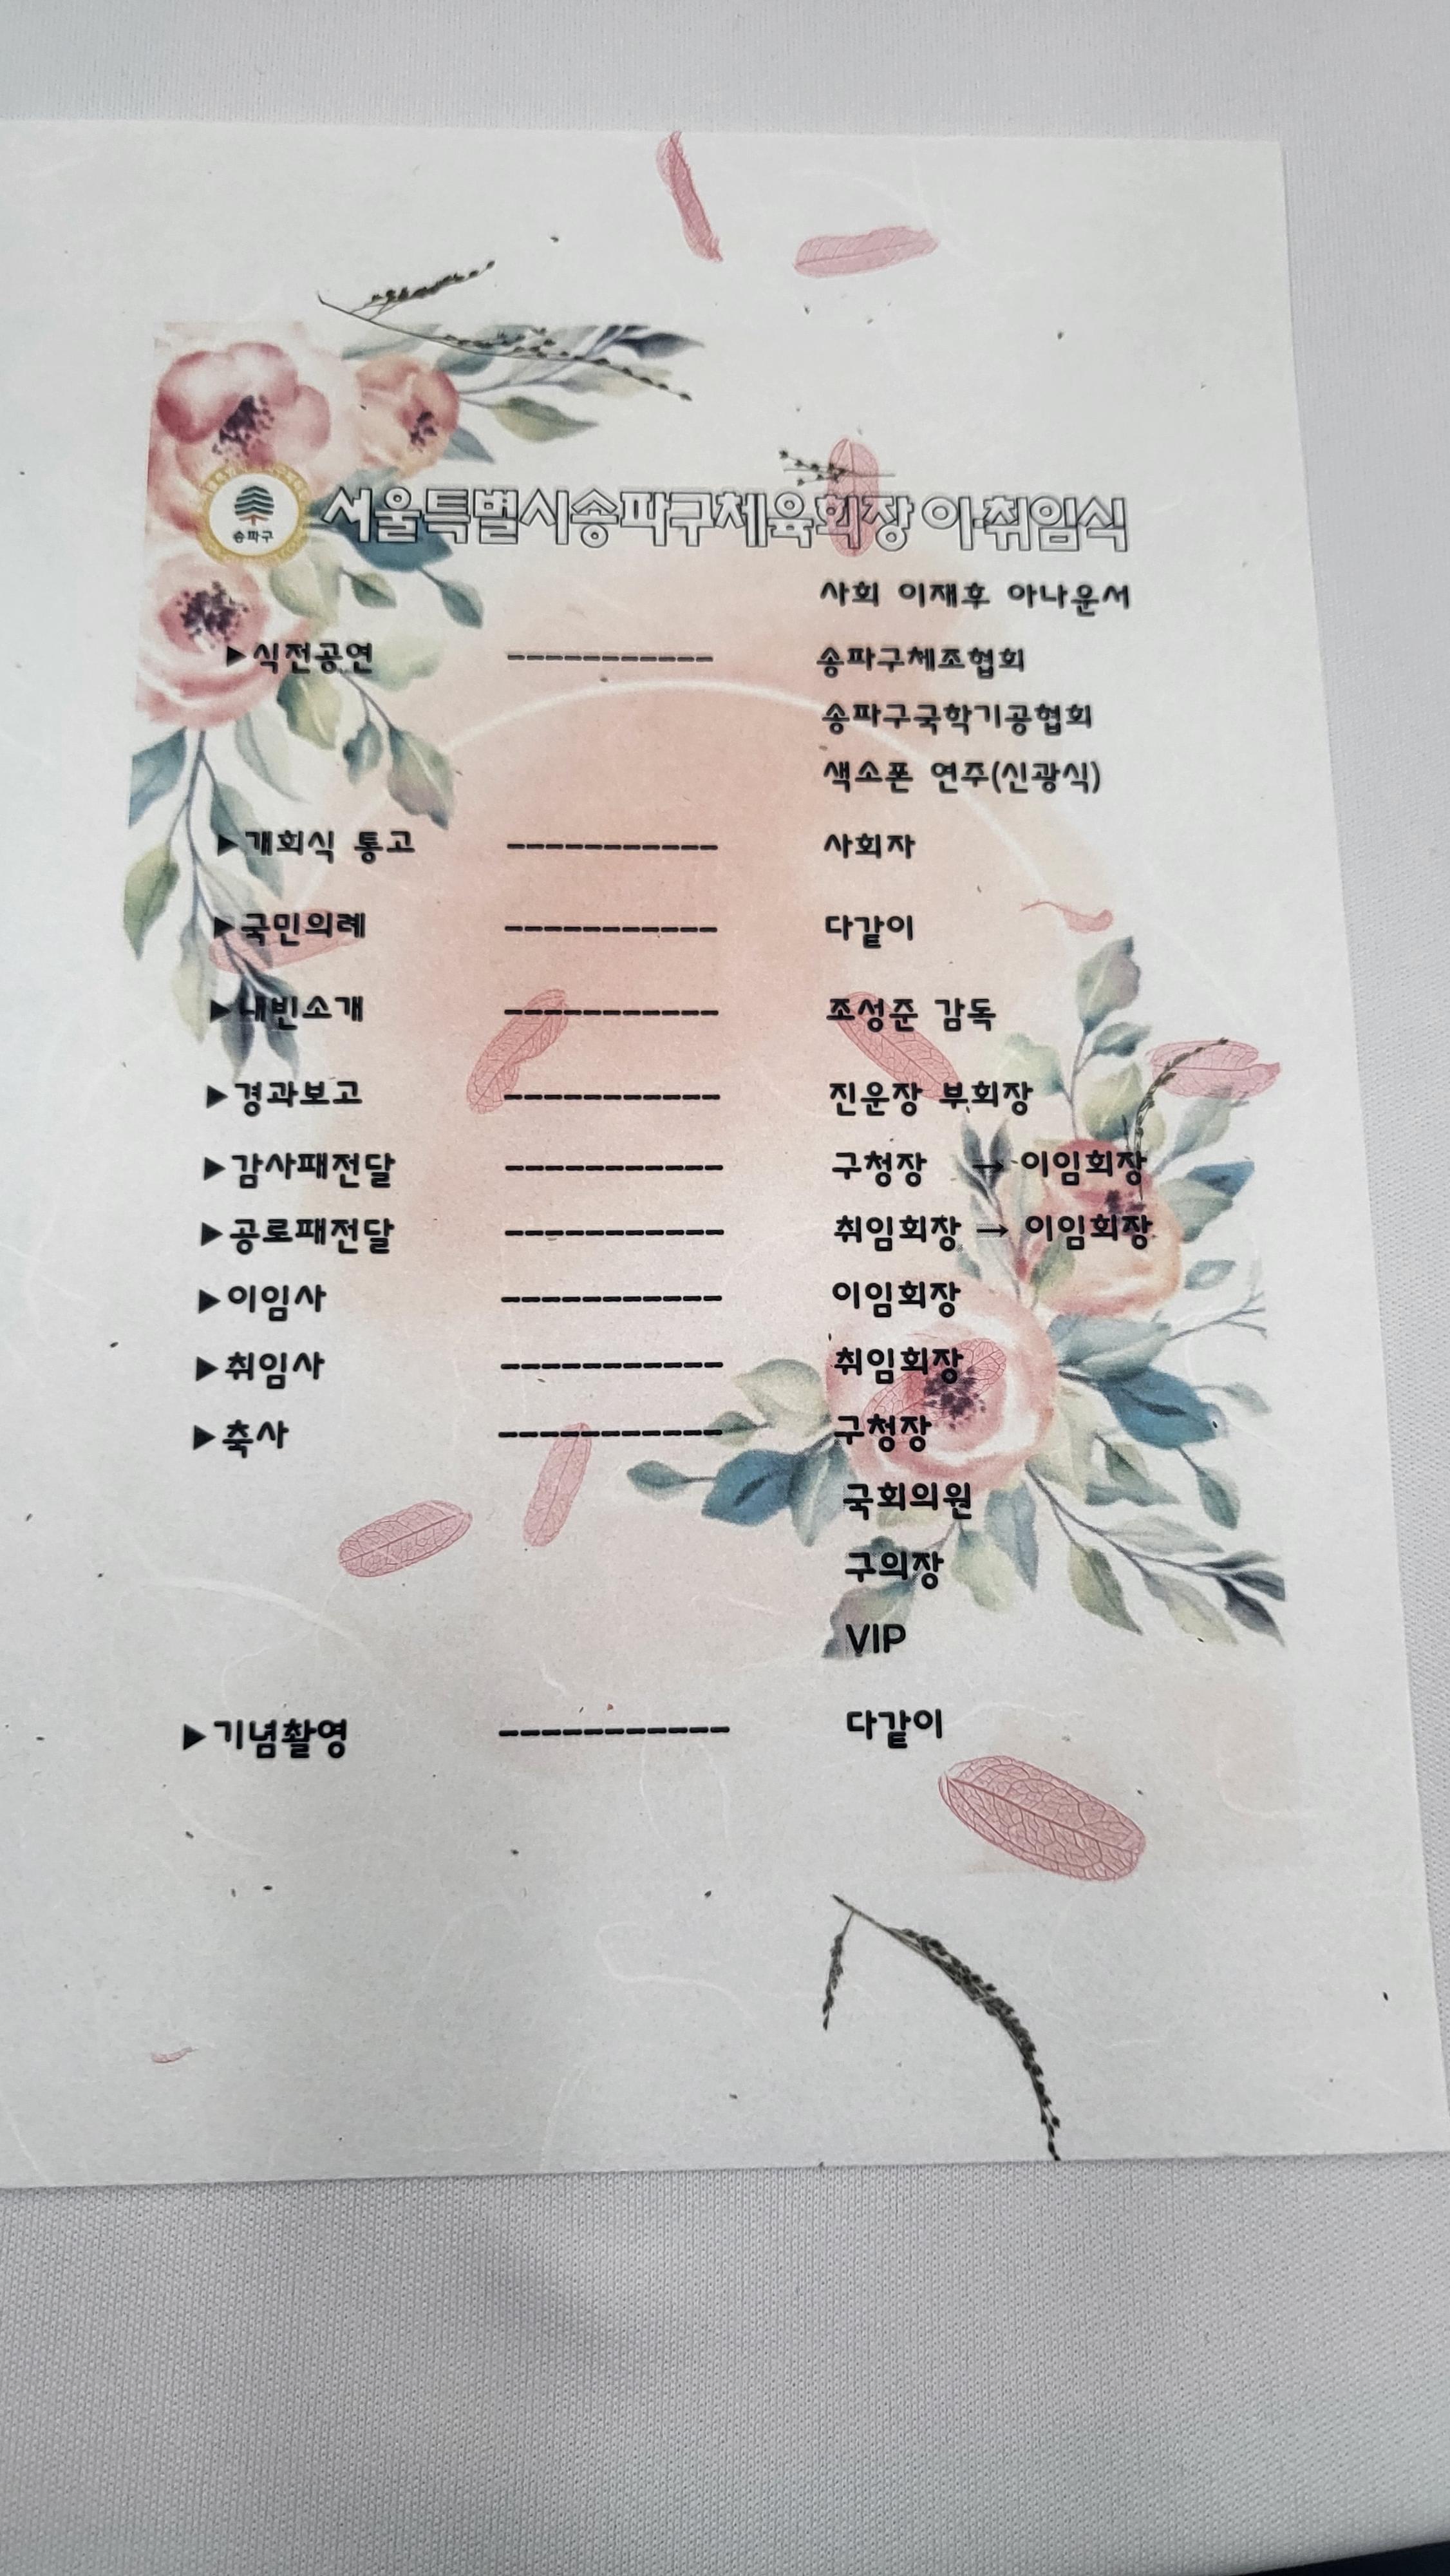 송파구
서울특별시송파구체육회장 이·취임식
사회 이재후 아나운서
▶식전공연 ----------- 송파구체조협회
송파구국학기공협회
색소폰 연주(신광식)
▶개회식 통고 ----------- 사회자
▶국민의례 ----------- 다같이
▶내빈소개 ----------- 조성준 감독
▶경과보고 ----------- 진운장 부회장
▶감사패전달 ----------- 구청장 → 이임회장
▶공로패전달 ----------- 취임회장 → 이임회장
▶이임사 ----------- 이임회장
▶취임사 ----------- 취임회장
▶축사 ----------- 구청장
국회의원
구의장
VIP
▶기념촬영 ----------- 다같이